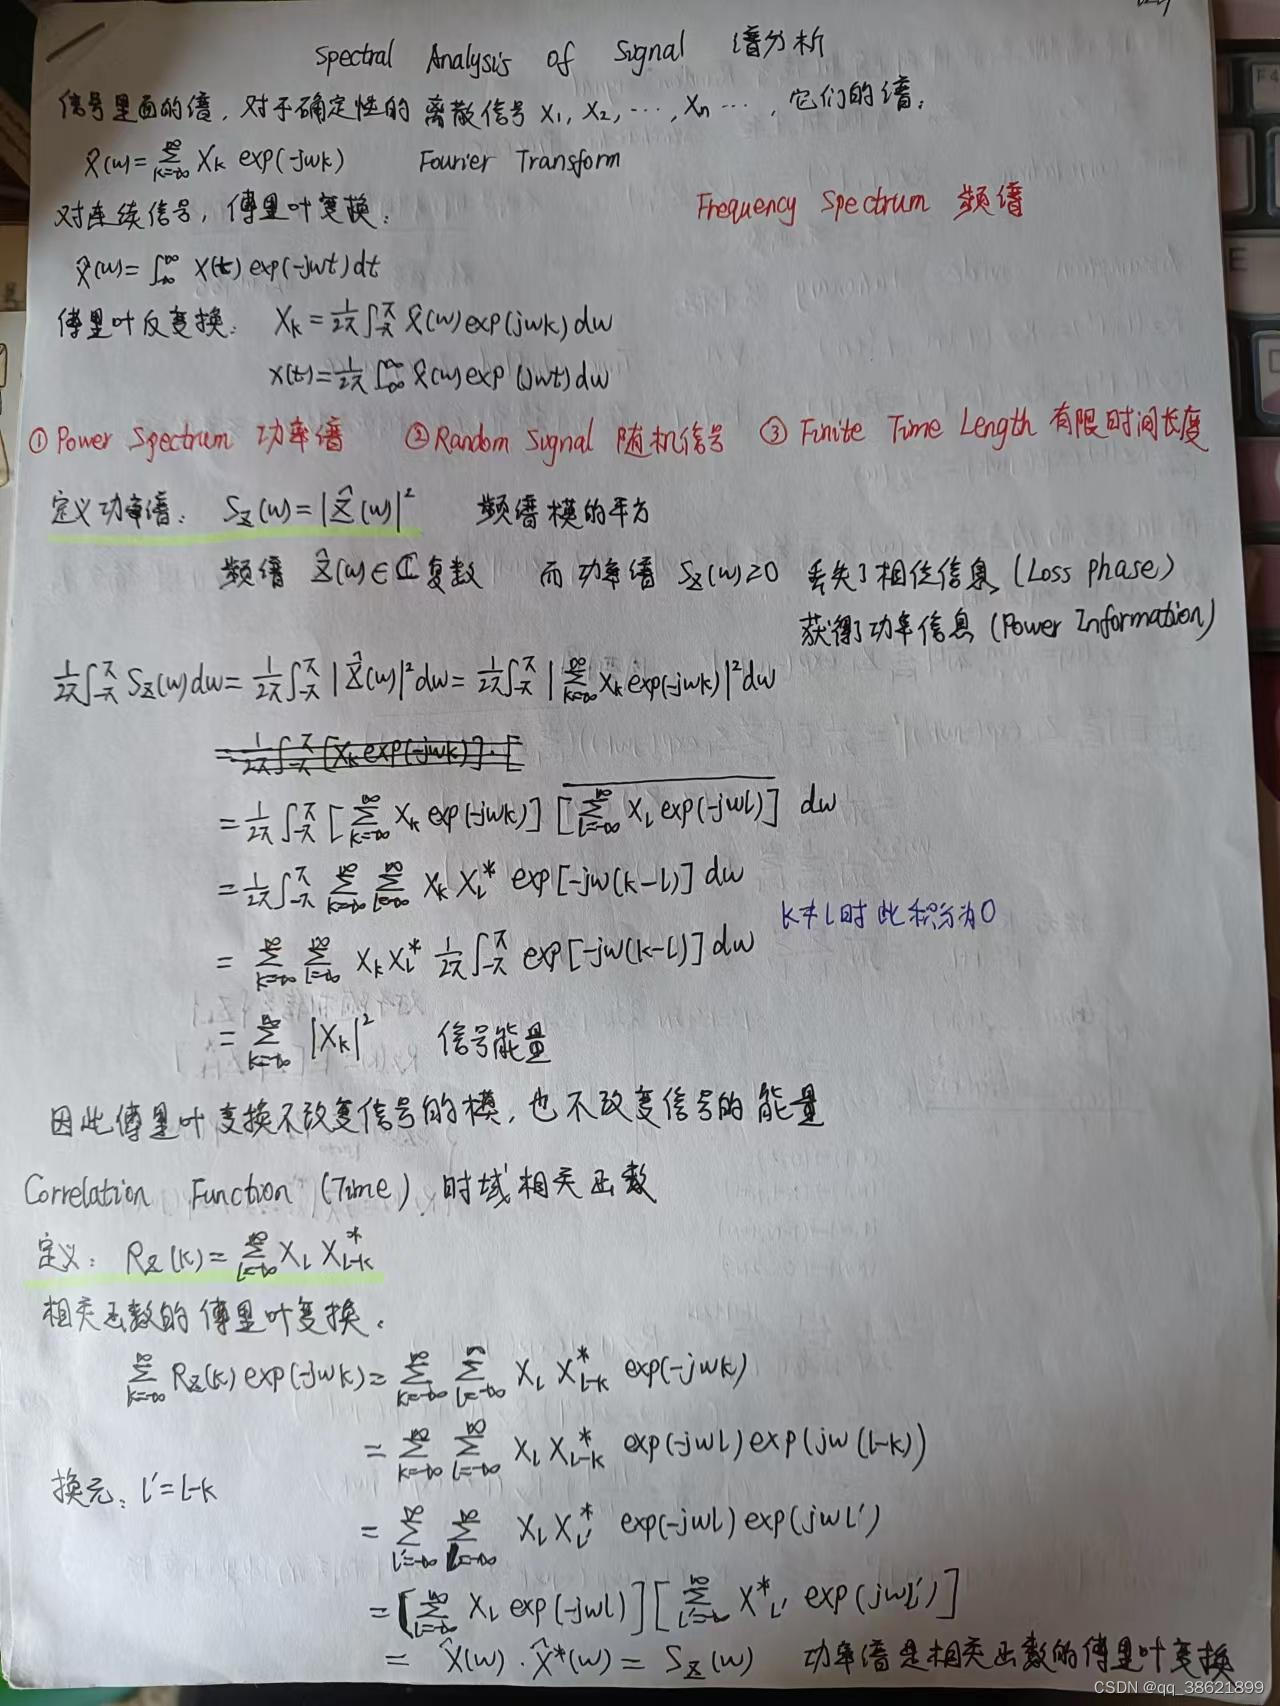 Spectral Analysis of Signal 谱分析
信号里面的谱，对于确定性的离散信号 X₁, X₂, ⋯, Xₙ ⋯, 它们的谱：
X̂(ω)=∑_{k=-∞}^{∞} X_k exp(-jωk) Fourier Transform
对连续信号，傅里叶变换：
Frequency Spectrum 频谱
X̂(ω)=∫_{-∞}^{∞} X(t) exp(-jωt)dt
傅里叶反变换： X_k = 1/2π ∫_{-π}^{π} X̂(ω) exp(jωk) dω
x(t)= 1/2π ∫_{-∞}^{∞} X̂(ω) exp(jωt) dω
① Power Spectrum 功率谱 ② Random Signal 随机信号 ③ Finite Time Length 有限时间长度
定义功率谱： S_Z(ω)=|Ẑ(ω)|² 频谱模的平方
频谱 Ẑ(ω)∈ℂ 复数 而功率谱 S_Z(ω)≥0 丢失了相位信息 (Loss phase)
获得了功率信息 (Power Information)
1/2π ∫_{-π}^{π} S_Z(ω)dω = 1/2π ∫_{-π}^{π} |Ẑ(ω)|² dω = 1/2π ∫_{-π}^{π} |∑_{k=-∞}^{∞} X_k exp(-jωk)|² dω
= 1/2π ∫_{-π}^{π} [X_k exp(-jωk)]·[
= 1/2π ∫_{-π}^{π} [∑_{k=-∞}^{∞} X_k exp(-jωk)] \overline{[∑_{l=-∞}^{∞} X_l exp(-jωl)]} dω
= 1/2π ∫_{-π}^{π} ∑_{k=-∞}^{∞} ∑_{l=-∞}^{∞} X_k X_l^* exp[-jω(k-l)] dω
k≠l时此积分为0
= ∑_{k=-∞}^{∞} ∑_{l=-∞}^{∞} X_k X_l^* 1/2π ∫_{-π}^{π} exp[-jω(k-l)] dω
= ∑_{k=-∞}^{∞} |X_k|² 信号能量
因此傅里叶变换不改变信号的模，也不改变信号的能量
Correlation Function (Time) 时域相关函数
定义： R_Z(k)=∑_{l=-∞}^{∞} X_l X_{l-k}^*
相关函数的傅里叶变换：
∑_{k=-∞}^{∞} R_Z(k) exp(-jωk) = ∑_{k=-∞}^{∞} ∑_{l=-∞}^{∞} X_l X_{l-k}^* exp(-jωk)
= ∑_{k=-∞}^{∞} ∑_{l=-∞}^{∞} X_l X_{l-k}^* exp(-jωl) exp(jω(l-k))
换元： l'=l-k
= ∑_{l'=-∞}^{∞} ∑_{l=-∞}^{∞} X_l X_{l'}^* exp(-jωl) exp(jωl')
= [∑_{l=-∞}^{∞} X_l exp(-jωl)] [∑_{l'=-∞}^{∞} X_{l'}^* exp(jωl')]
= X̂(ω)·X̂*(ω) = S_Z(ω) 功率谱是相关函数的傅里叶变换
CSDN @qq_38621899
F4
E